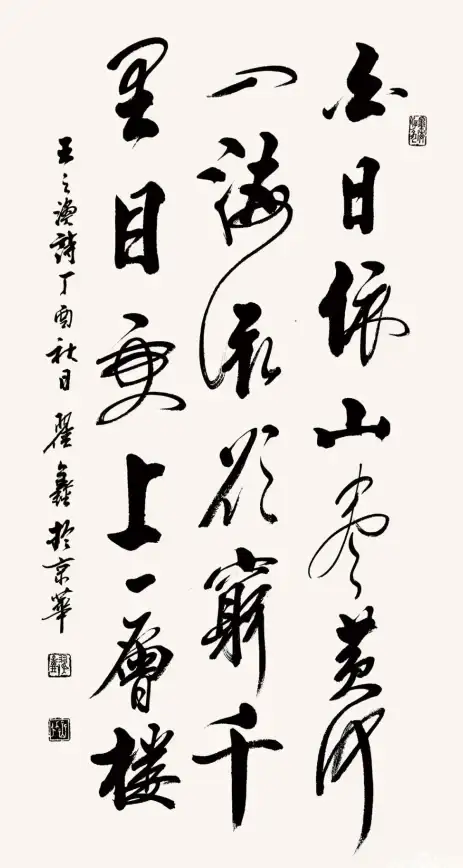 白日依山尽黄河
入海流欲窮千
里目更上一層楼
王之渙詩丁酉秋日翟鑫於京華